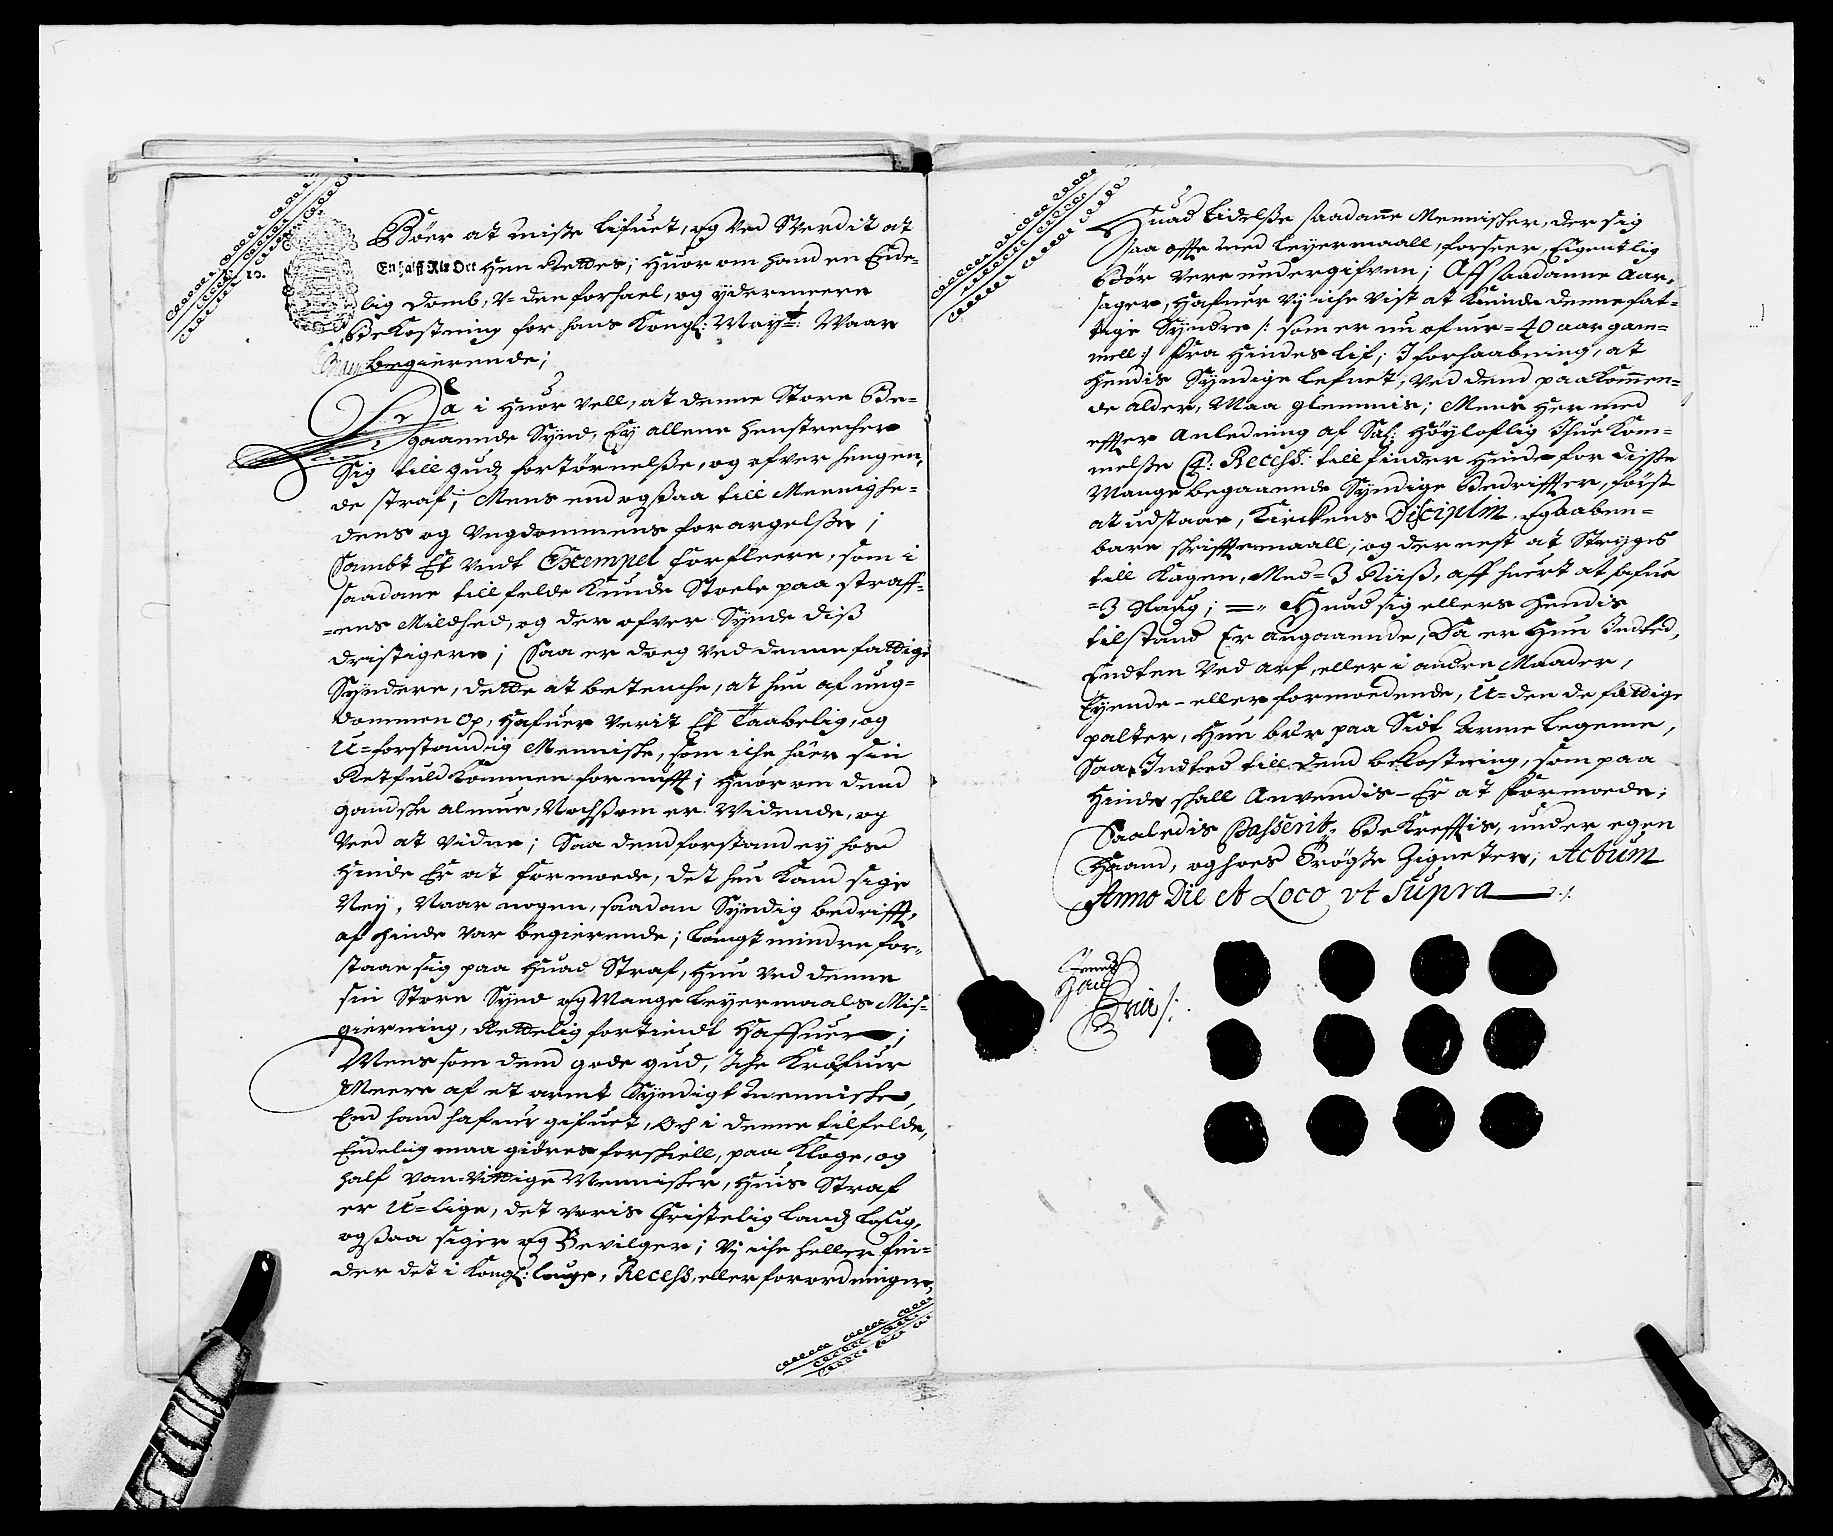 12.
Bör at miste lifuet, og Ved Sverdit at
En halff Rix Ort Hen Rettes; Huor om hand en Ende-
lig Domb, U-den forhael, og ydermeere
Bekostning for hans Kongl: Mayt: Waar
begierende;
Da i Huor Vell, at denne Store Be-
gaaende Synd, Ey allene henstrecher
Sig till gudz fortørnelsse, og ofver hengen-
de straf; Mens end ogsaa till Meenighe-
dens og Ungdommens forargelsse;
Sambt Et Ondt Exempel for fleere, som i
saadane tillfelde Kunde Stoele paa straff-
-ens Mildhed, og der ofver Synde diss
dristigere; Saa er doeg Ved denne fattige
Syndere, dette at betenche, at hun af ung-
dommen op, Hafuer Verit Et Taabelig, og
U-forstandig Menniske, som iche haer sin
Retfuldkommen fornufft; Huor om dend
gandske almue, Nochsom er Widende, og
Veed at Vidne; Saa dend forstand ey hos
Hinde Er at formoede, det hun Kand sige
Ney, Naar nogen, saadan Syndig bedrifft,
af hinde Var begierende; Langt mindre for-
staae sig paa Huad Straf, Hun Ved denne
sin Store Synd og Mange Leyermaals Mis-
gierning, Rettelig fortient Haffuer;
Mens som dend gode gud, Iche Kræfuer
Meere af et armt Syndigt menniske,
End hand hafuer gifuet, Och i denne tilfelde,
Endelig maa giøres forskiell, paa Kloge, og
half Van-Vittige Mennisker, Huis Straf
er U-lige, det Voris Cristelig Landz Laug,
ogsaa siger og Bevilger; Vy iche heller fin-
der det i Kongl: Louge, Recess, eller forordninger,
Huad Lidelsse saadane Mennisker, der sig
saa offte med Leyermaall, forseer, Eigentlig
Bør Vere undergifven; Aff saadanne Aar-
sager, Hafuer Vy iche Vist at Kunde denne fat-
tige Syndre /: som er nu ofuer - 40 aar gam-
mell :/ fra Hindes Lif, I forhaabning, at
hendis Syndige Lefnet, Ved dend paakommen-
de alder, Maa glemmis; Mens Her med
effter Anledning af Sal: Høyloflig Ihukom-
melsse C4: Recess: till finder Hinde for disse
Mange begaaende Syndige Bedriffter, først
at udstaae, Kirckens Diciplin, og aaben-
bare skrifftemaall, og der nest at Stryges
till Kagen, Med - 3 Riiss, aff huert at hafue
- 3 Slaug; Huad sig ellers Hendis
tilstand Er angaaende, Da er Hun Inted,
Endten Ved arf, eller i andre Maader,
Eyende - eller formoedende, U-den de fattige
palter, Hun bær paa Sidt Arme Legeme,
Saa Inted till dend bekostning, som paa
Hinde skall Anvendis - Er at formoede;
Saaledis Passerit, Bekrefftis, under egen
Haand, og hoes trøgte Zigneter; Actum
Anno Die et Loco ut Supra